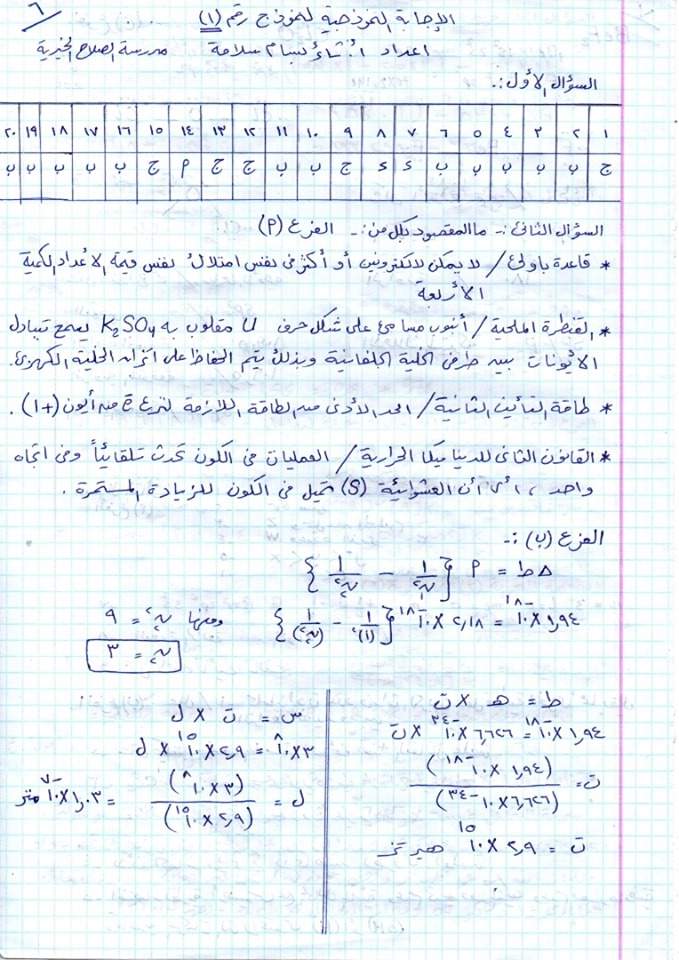 الإجابة النموذجية لنموذج رقم (١)
اعداد أ. ثناء بسام سلامة مدرسة الصلاح الخيرية
السؤال الأول:-
١ ٢ ٣ ٤ ٥ ٦ ٧ ٨ ٩ ١٠ ١١ ١٢ ١٣ ١٤ ١٥ ١٦ ١٧ ١٨ ١٩ ٢٠
ج ب ب ب ب ب د د ج ب ب ج ج أ ج ب ب ب ب ب
السؤال الثاني:- ما المقصود بكل من:- الفرع (أ)
* قاعدة باولي / لا يمكن لالكترونين أو أكثر في نفس امتلاك نفس قيمة الأعداد الكمية
الأربعة
* القنطرة الملحية / أنبوب مسامي على شكل حرف U مقلوب به K₂SO₄ يسمح تبادل
الأيونات بين طرفي الخلية الجلفانية وبذلك يتم الحفاظ على اتزان الخلية الكهربي.
* طاقة التأين الثانية / الحد الأدنى من الطاقة اللازمة لنزع e من أيون (+١).
* القانون الثاني للديناميكا الحرارية / العمليات في الكون تحدث تلقائياً وفي اتجاه
واحد، أي أن العشوائية (S) تميل في الكون للزيادة المستمرة.
الفرع (ب) :-
Δط = أ {١/ن٢ − ١/ن٢}
١,٩٤ × ١٠^−١٨ = ٢,١٨ × ١٠^−١٨ {١/(١)٢ − ١/(ن)٢} ومنها ن٢ = ٩
ن = ٣
ط = هـ × ت
١,٩٤ × ١٠^−١٨ = ٦,٦٢٦ × ١٠^−٣٤ × ت
ت = (١,٩٤ × ١٠^−١٨) / (٦,٦٢٦ × ١٠^−٣٤)
ت = ٢,٩ × ١٠^١٥ هيرتز
س = ت × ل
٣ × ١٠^٨ = ٢,٩ × ١٠^١٥ × ل
ل = (٣ × ١٠^٨) / (٢,٩ × ١٠^١٥) = ١,٠٣ × ١٠^−٧ متر